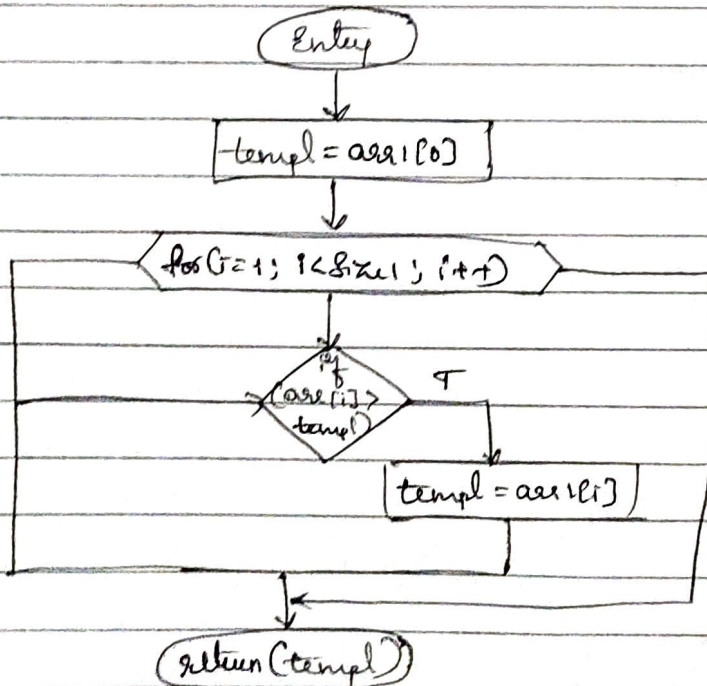 Entry
temp1 = arr1[0]
for(i=1; i<size1; i++)
if
(arr[i]>
temp1)
T
temp1 = arr1[i]
return(temp1)